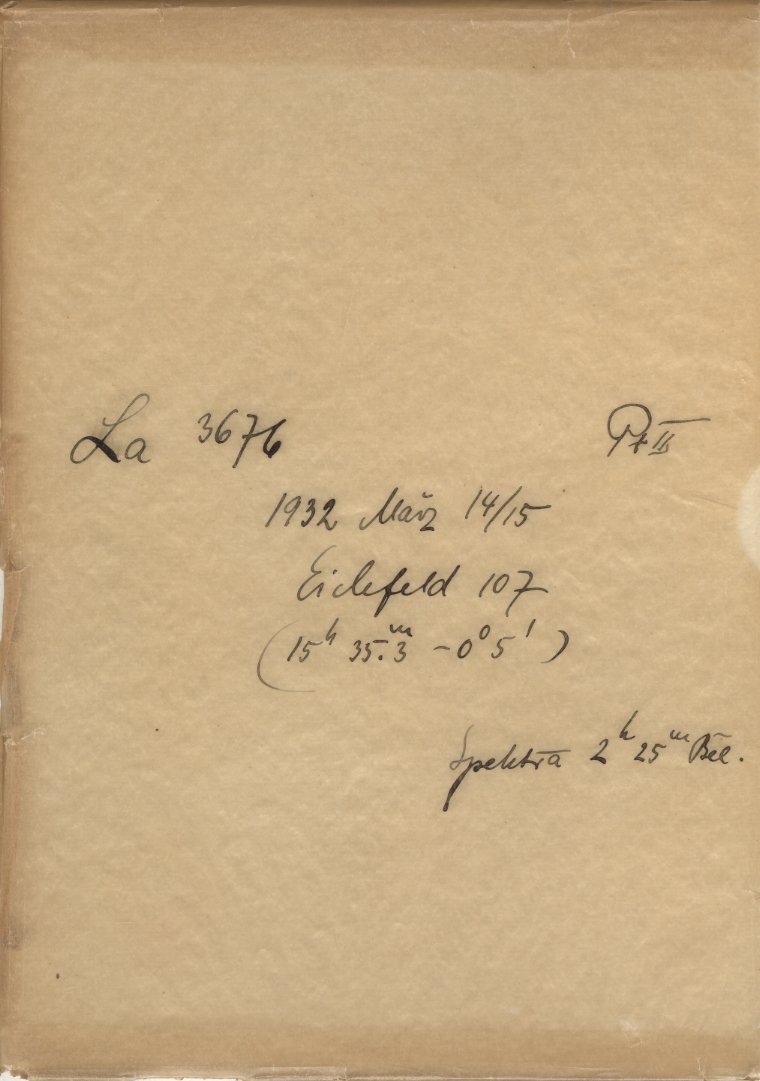 La 3676 Pr II
1932 März 14/15
Eichfeld 107
(15ʰ 35.ᵐ3 -0⁰5')
Spektra 2ʰ25ᵐ Bel.